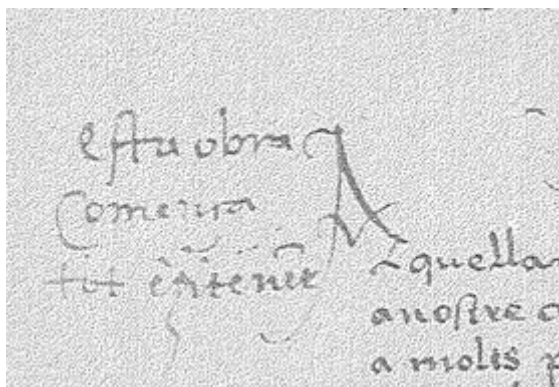 esta obra
Comença
tot
A quella
a nostre
a molts